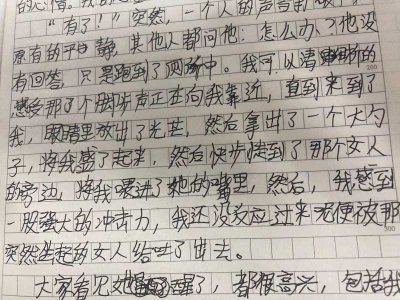 的心情。我的心
"有了!"突然,一个人的声音制破了
原有的平静,其他人都问他:怎么办?他没
有回答,只是跑到了网所中。我可以清晰的
200
感受那了个脚步声正在向我靠近,直到来到了
我,眼睛里放出了光芒,然后拿出了一个大勺
子,将我盛了起来,然后快步走到了那个女人
的旁边,将我喂进了她的嘴里,然后,我感到
一股强大的冲击力,我还没反应过来无便被那
300
突然坐起的女人给吐了出去。
大家看见她醒了,都很高兴,包括我